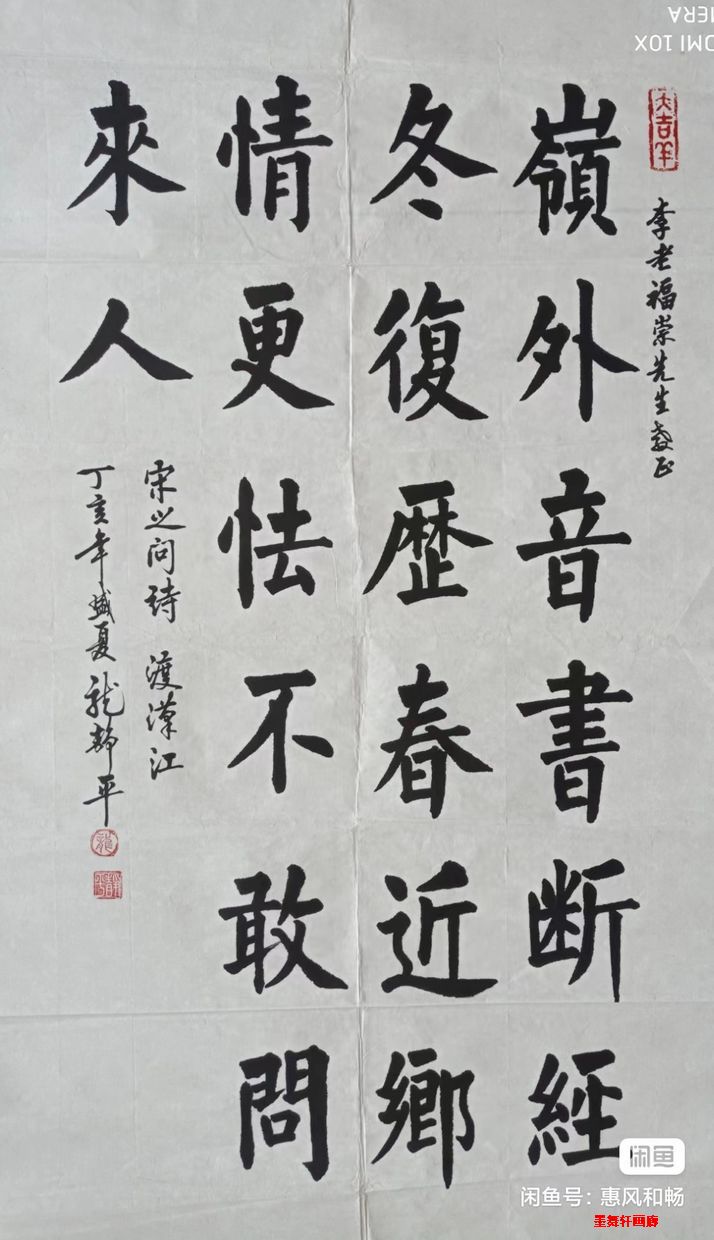 大吉羊
李老福崇先生教正
嶺外音書断經
冬復歷春近鄉
情更怯不敢問
來人
宋之问詩 渡漢江
丁亥年盛夏龍静平
龍
闲鱼
闲鱼号：惠风和畅
墨舞轩画廊